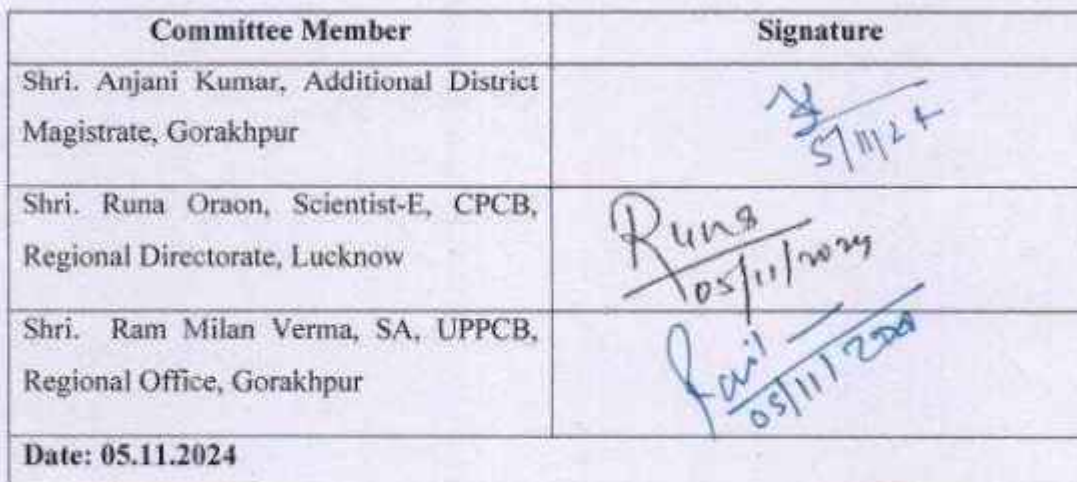 Committee Member Signature
Shri. Anjani Kumar, Additional District
Magistrate, Gorakhpur
5/11/24
Shri. Runa Oraon, Scientist-E, CPCB,
Regional Directorate, Lucknow
Runa
05/11/2024
Shri. Ram Milan Verma, SA, UPPCB,
Regional Office, Gorakhpur
05/11/
Date: 05.11.2024